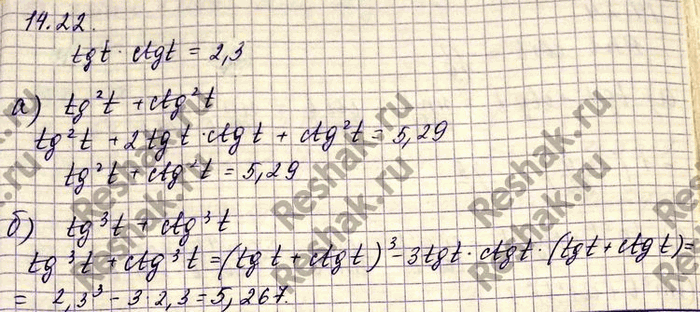 14.22.
tgt · ctgt = 2,3
а) tg²t + ctg²t
tg²t + 2tgt · ctgt + ctg²t = 5,29
tg²t + ctg²t = 5,29
б) tg³t + ctg³t
tg³t + ctg³t = (tgt + ctgt)³ - 3tgt · ctgt · (tgt + ctgt) =
= 2,3³ - 3 · 2,3 = 5,267.
Reshak.ru
Reshak.ru
Reshak.ru
Reshak.ru
Reshak.ru
Reshak.ru